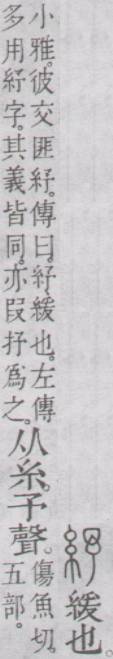 紓 緩也。
小雅。彼交匪紓。傳曰。紓、緩也。左傳
多用紓字。其義皆同。亦叚抒爲之。
从糸。予聲。
傷魚切。
五部。